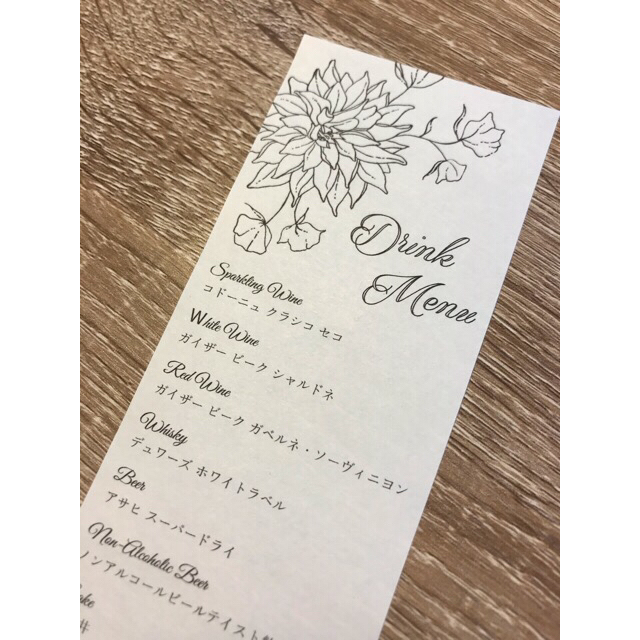 Drink
Menu
Sparkling Wine
コドーニュ クラシコ セコ
White Wine
ガイザー ピーク シャルドネ
Red Wine
ガイザー ピーク ガベルネ・ソーヴィニヨン
Whisky
デュワーズ ホワイトラベル
Beer
アサヒ スーパードライ
Non-Alcoholic Beer
ノンアルコールビールテイスト